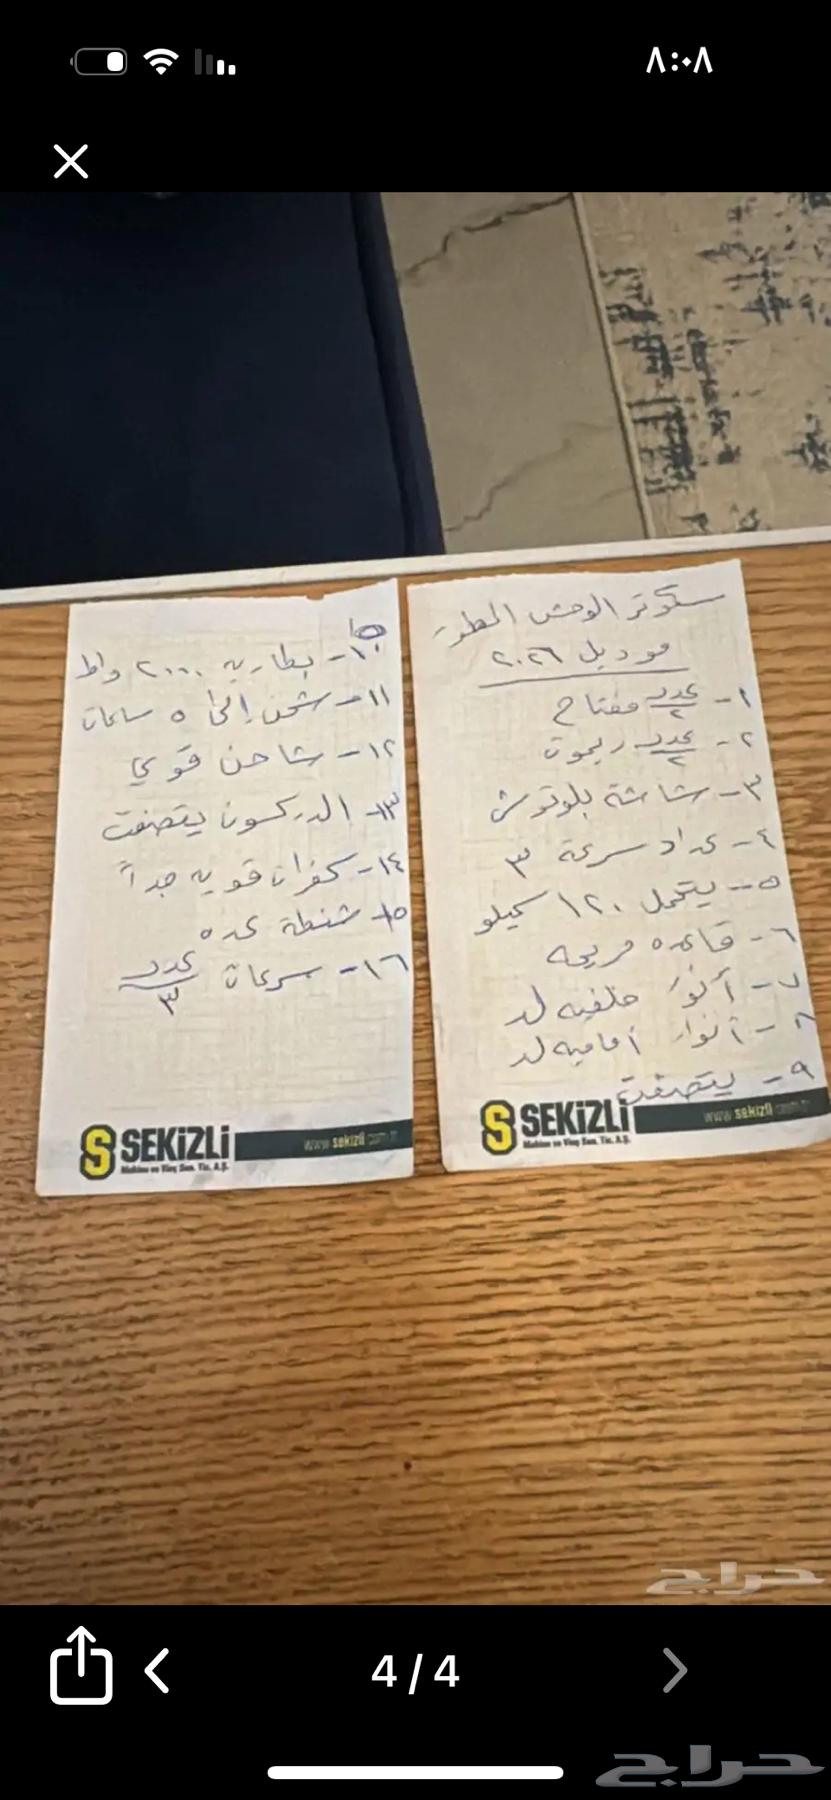 ٨:٠٨
سكوتر الوحش المطور
موديل ٢٠٢٦
١- عدد ٢ مفتاح
٢- عدد ٢ ريموت
٣- شاشة بلوتوث
٤- عداد سرعة ٣
٥- يتحمل ١٢٠ كيلو
٦- قاعده مريحه
٧- أنوار خلفيه لد
٨- أنوار أماميه لد
٩- يتصفت
SEKiZLi
www.sekizli.com.tr
Makina ve Vinç San. Tic. A.Ş.
١٠- بطاريه ٢٠٠٠ واط
١١- شحن إلى ٥ ساعات
١٢- شاحن قوي
١٣- الدركسون يتصفت
١٤- كفرات قويه جداً
١٥- شنطة عده
١٦- سرعات عدد ٣
SEKiZLi
www.sekizli.com.tr
Makina ve Vinç San. Tic. A.Ş.
حراج
4 / 4
حراج